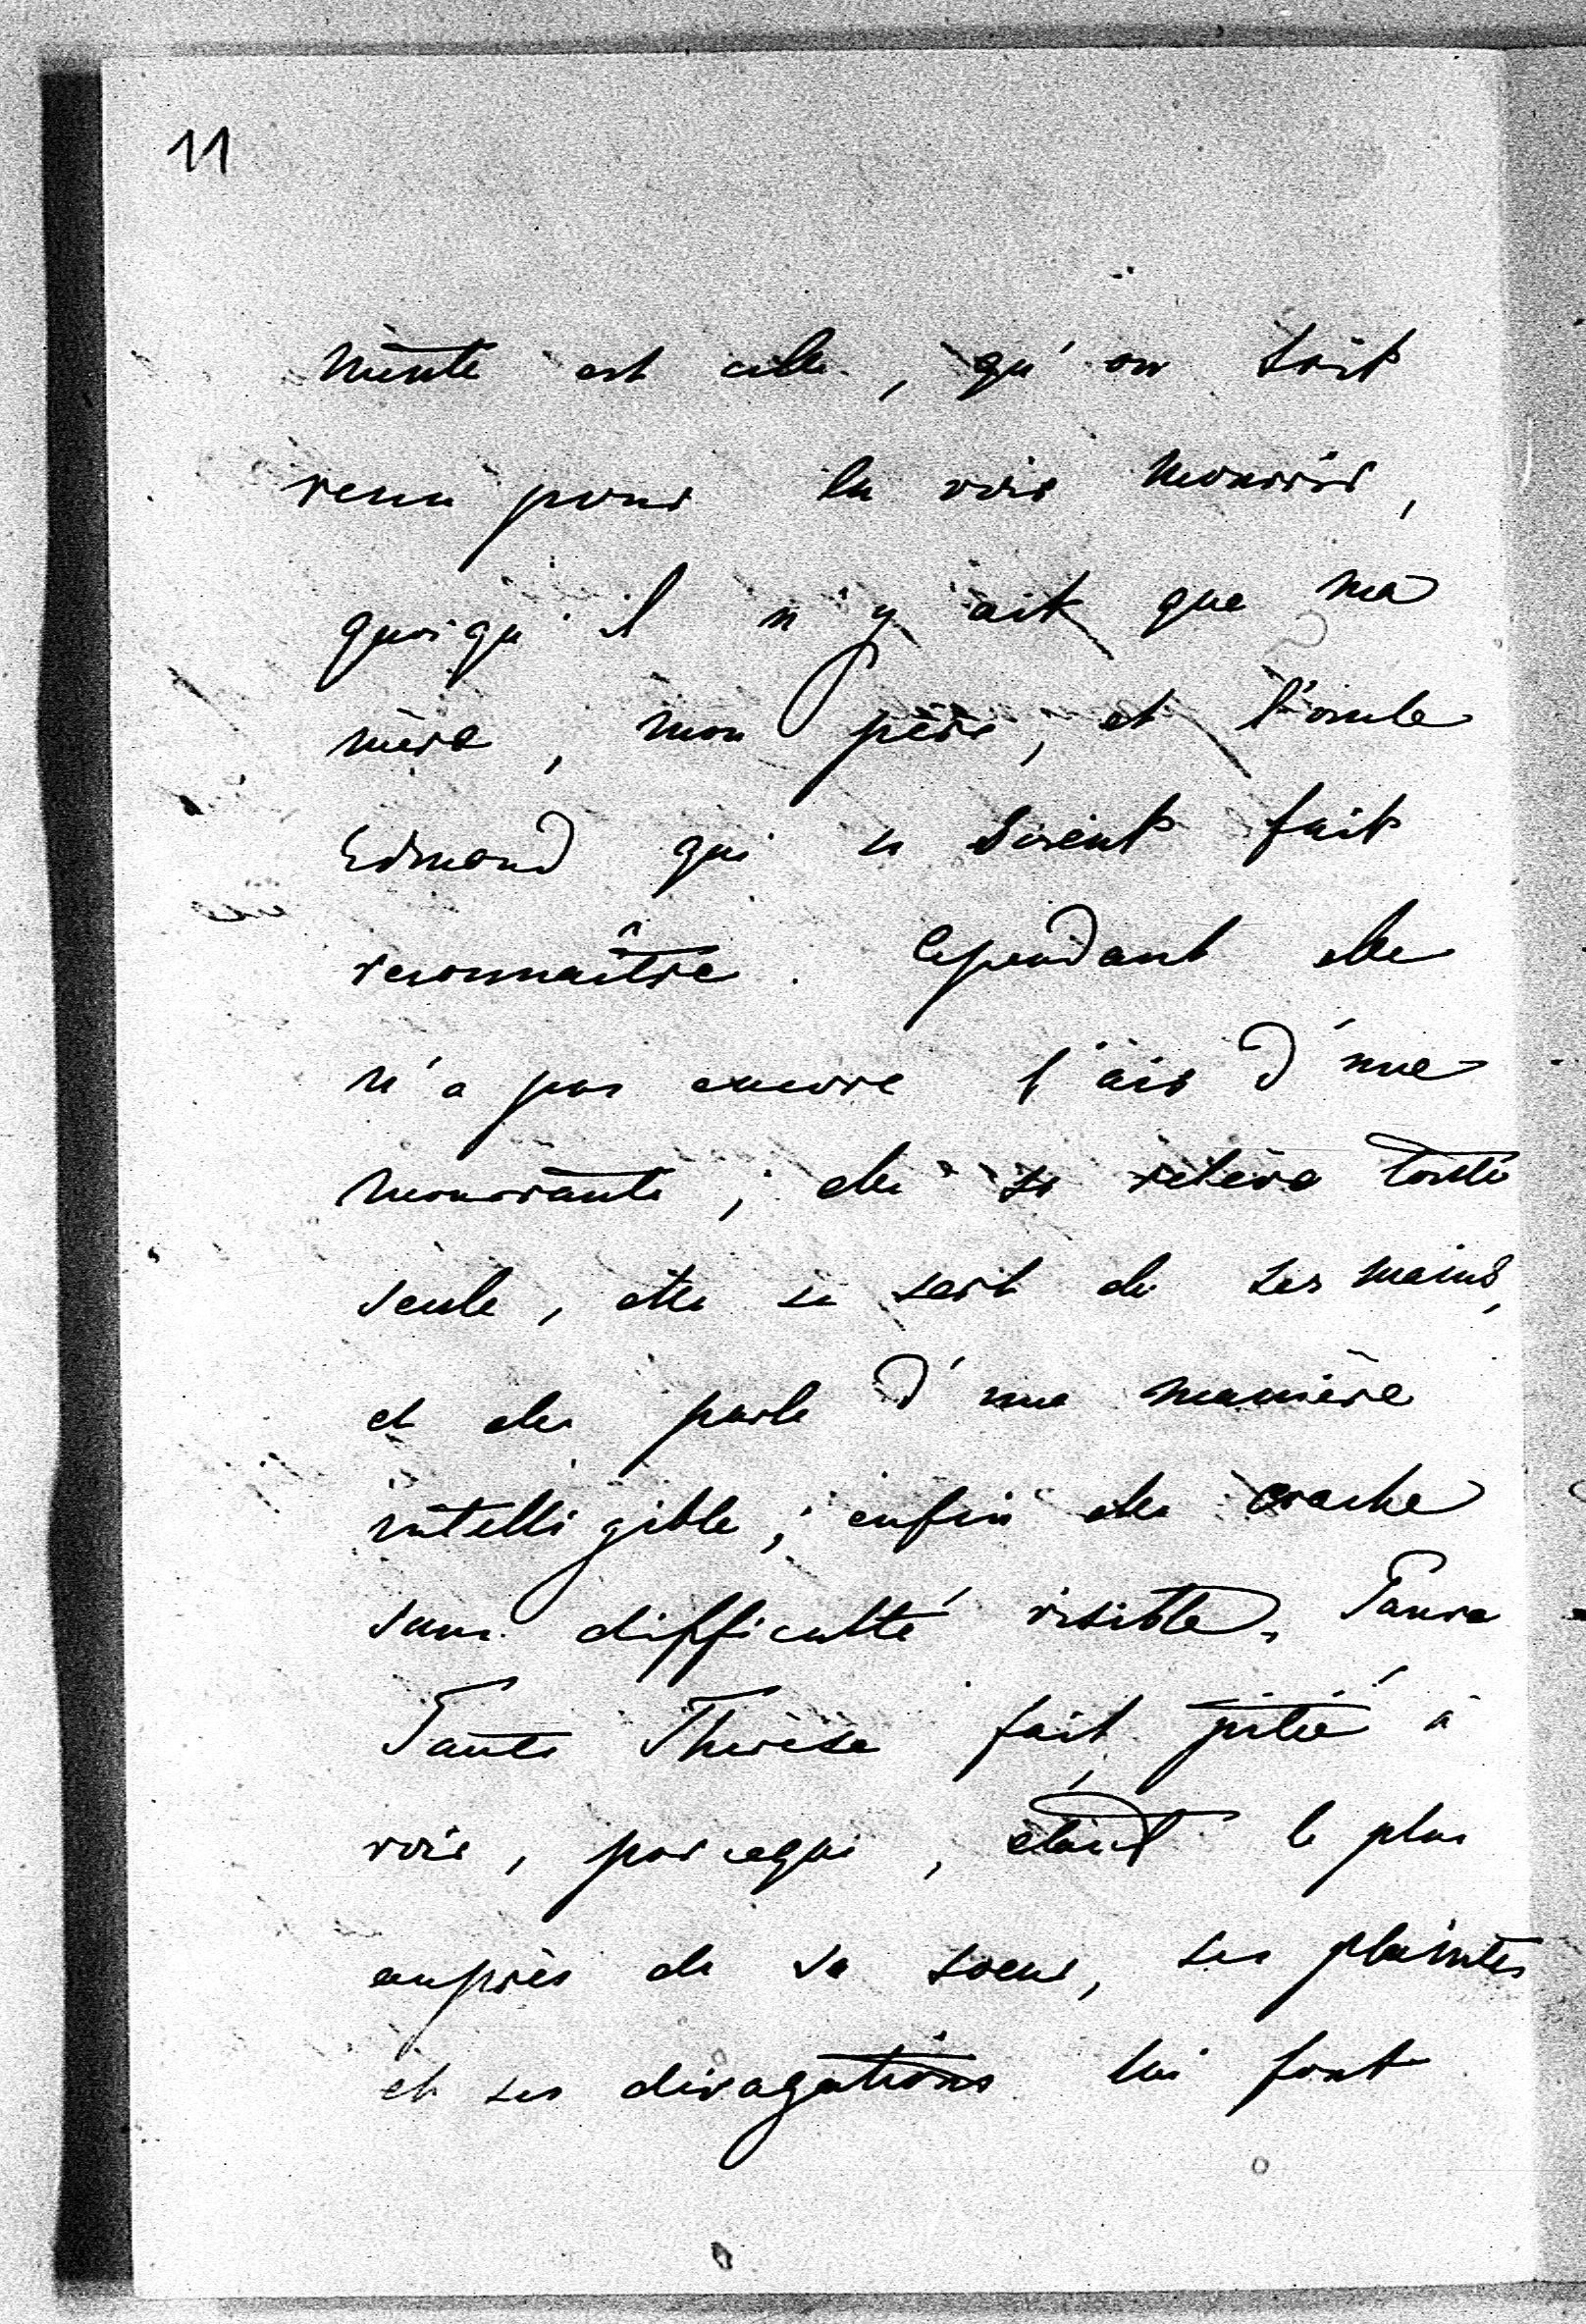 11
mente est celle, qu'on soit
venu pour la voir mourir,
quoiqu'il n'y ait que ma
mère, mon père, et l'oncle
Edmond qui se soient fait
reconnaître. Cependant elle
n'a pas encore l'air d'une
mourante; elle se relève toute
seule, elle se sert de ses mains,
et elle parle d'une manière
intelligible; enfin elle crache
sans difficulté visible. Pauvre
Tante Thérèse fait pitié à
voir, parceque, étant le plus
auprès de sa soeur, ses plaintes
et ses divagations lui font